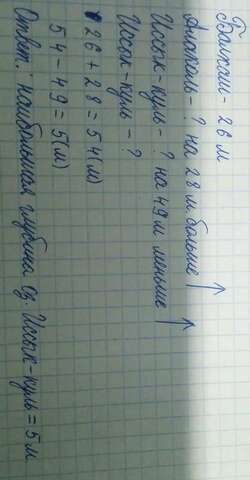 Балхаш - 26 м
Алаколь - ? на 28 м больше ↑
Иссык-куль - ? на 49 м меньше ↑
Иссык-куль - ?
26 + 28 = 54 (м)
54 - 49 = 5 (м)
Ответ: наибольшая глубина оз. Иссык-куль = 5 м